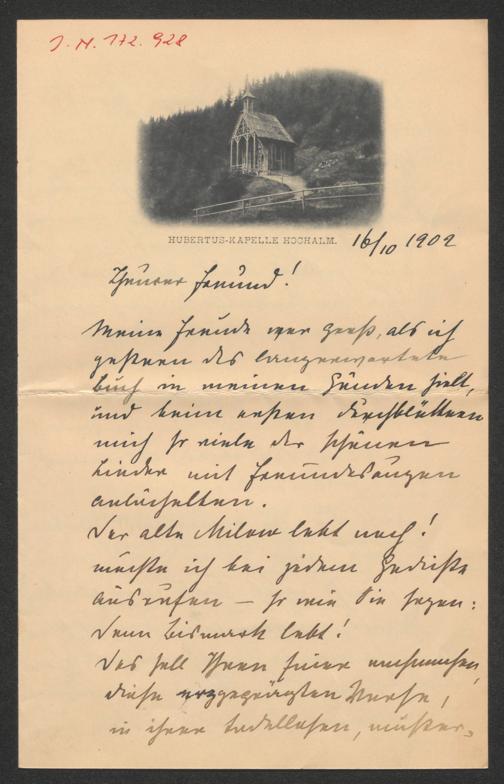 J. N. 172.928
HUBERTUS-KAPELLE HOCHALM.
16/10 1902
Theurer Freund!
Meine Freude war groß, als ich
gestern das langerwartete
Buch in meinen Händen hielt,
und beim ersten Durchblättern
mich so viele der schönen
Lieder mit Freundesaugen
anlächelten.
Der alte Milow lebt noch!
mußte ich bei jedem Gedichte
ausrufen – so wie Sie sagen:
Denn Bismark lebt!
Das soll Ihnen Einer nachmachen,
diese erzgeprägten Verse,
in ihrer tadellosen, muster-